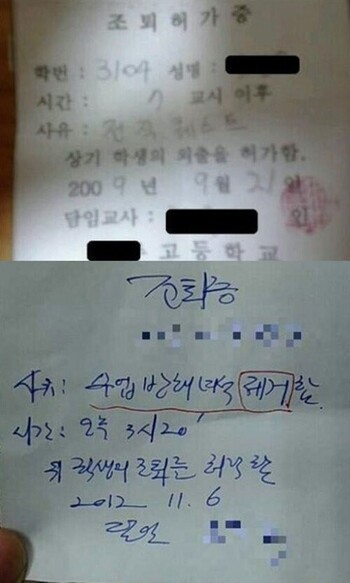 조퇴허가증
학번 : 3104 성명 :
시간 : 7 교시 이후
사유 : 전직 퀘스트
상기 학생의 외출을 허가함.
2009 년 9월 21일
담임교사 : 인
고등학교
조퇴증
사유: 수업 방해 녀석 제거함.
시간: 오후 3시20'
위 학생의 조퇴를 허락함
2012 11. 6
담임